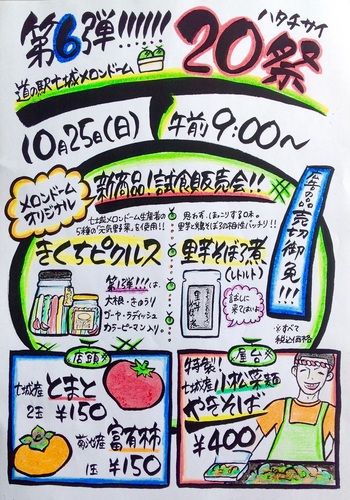 第6弾!!!!!!
ハタチサイ
20祭
道の駅七城メロンドーム
10月25日(日) 午前9:00~
メロンドーム
オリジナル
新商品!試食販売会!!
七城メロンドーム生産者の
5種の「元気野菜」を使用!!
きくちピクルス
第1弾!!!は、
大根・きゅうり
ゴーヤ・ラディッシュ
カラーピーマン入り。
思わず、ほっこりする日本。
里芋と鶏そぼろの相性バッチリ!!
里芋そぼろ煮
(レトルト)
試しに
来てはいよ
売切御免!!!
※すべて
税込価格
店頭
七城産 とまと
2玉 ¥150
菊池産 富有柿
1玉 ¥150
屋台
特製!
七城産 小松菜麺
やきそば
¥400